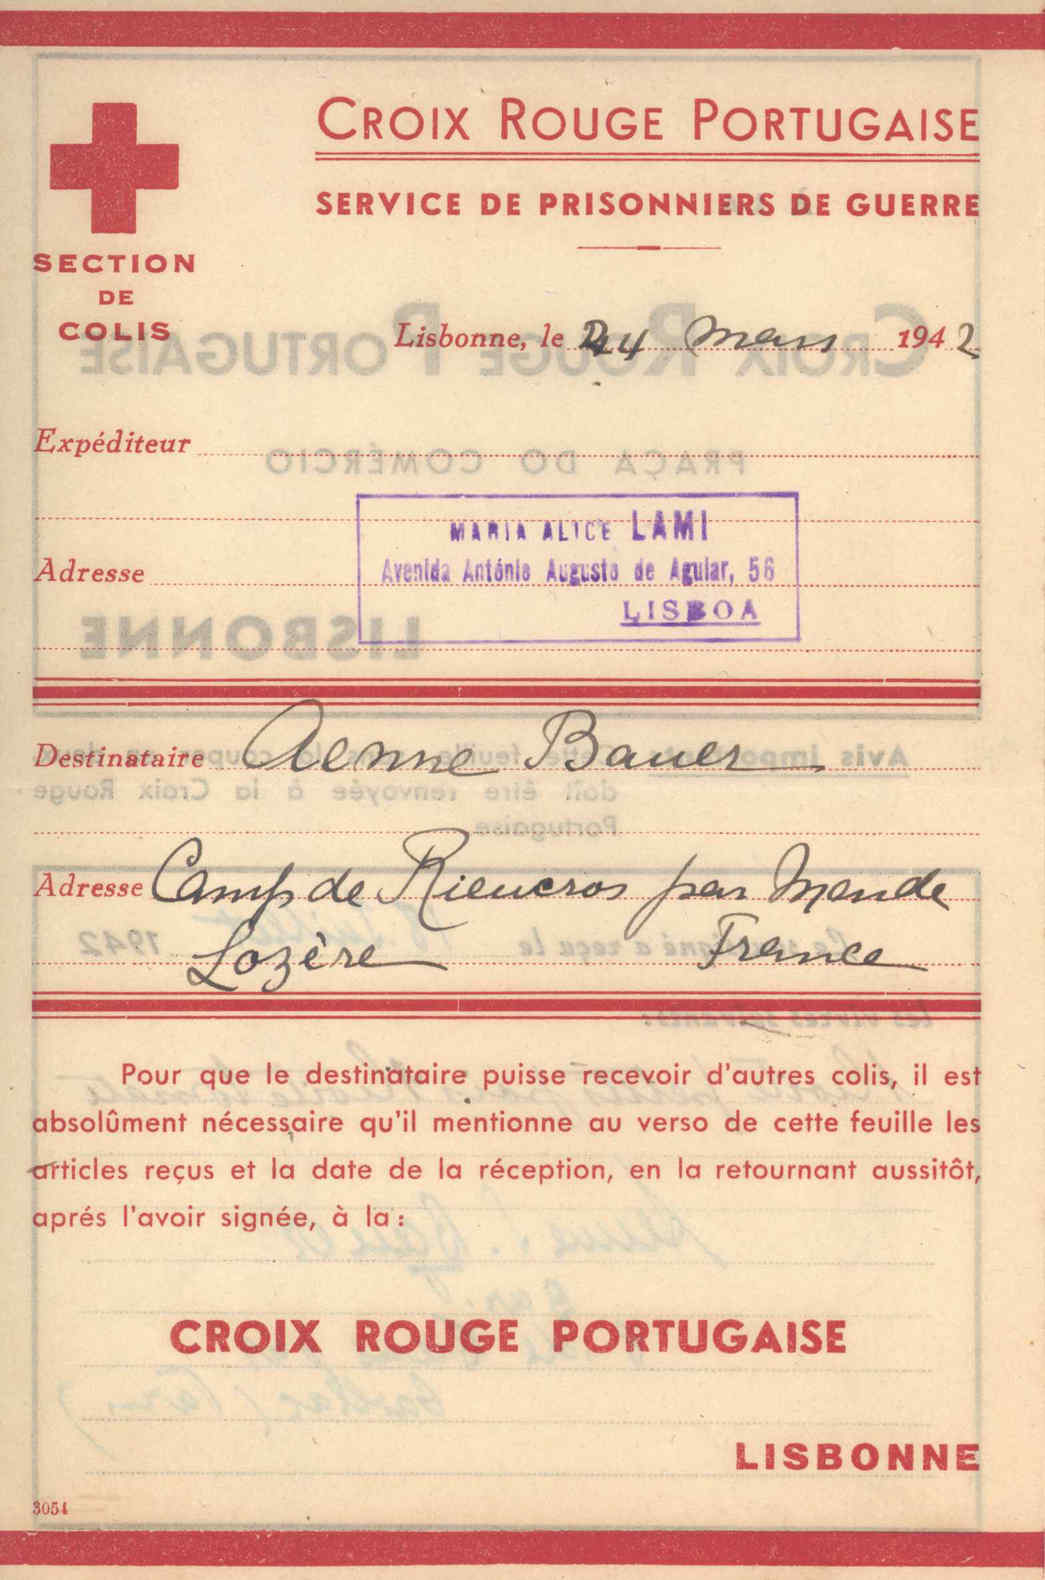 CROIX ROUGE PORTUGAISE
SERVICE DE PRISONNIERS DE GUERRE
SECTION
DE
COLIS
Lisbonne, le 24 mars 1942
Expéditeur
MARIA ALICE LAMI
Adresse
Avenida António Augusto de Aguiar, 56
LISBOA
Destinataire Aenne Bauer
Adresse Camp de Rieucros par Mende
Lozère France
Pour que le destinataire puisse recevoir d'autres colis, il est
absolûment nécessaire qu'il mentionne au verso de cette feuille les
articles reçus et la date de la réception, en la retournant aussitôt,
aprés l'avoir signée, à la:
CROIX ROUGE PORTUGAISE
LISBONNE
3054